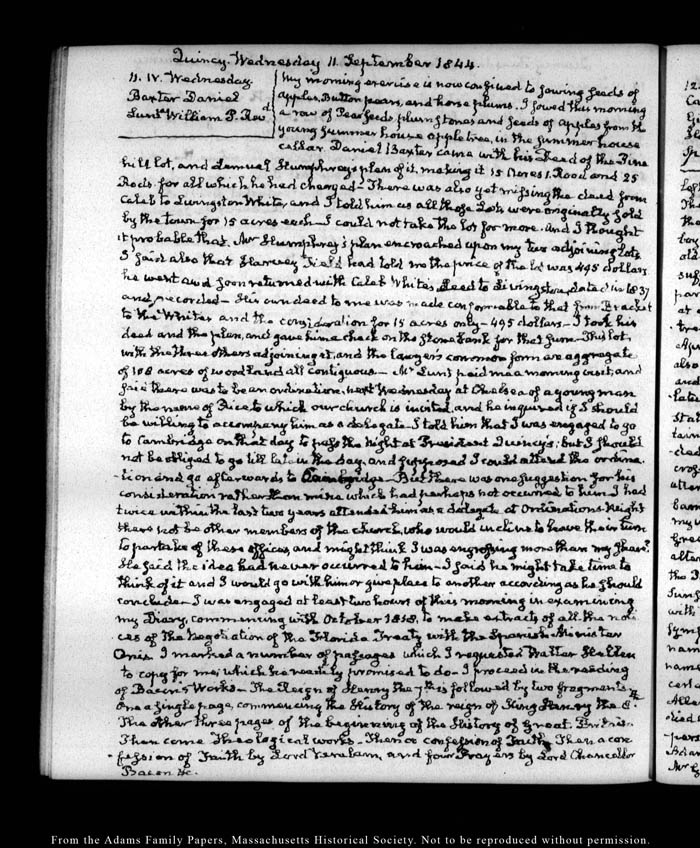 Quincy. Wednesday 11. September 1844.
11. IV. Wednesday.
Baxter Daniel
Lunt William P. Revd
My morning exercise is now confined to sowing seeds of
apples, Button pears, and horse plums. I sowed this morning
a row of Pear seeds plumstones and seeds of Apples from the
young summer house apple tree, in the summer house
cellar. Daniel Baxter came with his Deed of the Pine
hill lot, and Lemuel Humphrey's plan of it, making it 15 Acres 1. Rood and 25
Rods. for all which he had charged— There was also yet missing the deed from
Caleb to Livingston White, and I told him as all those Lots were originally sold
by the town for 15 acres each I could not take the lot for more. and I thought
it probable that Mr Humphrey's plan encroached upon my two adjoining lots
I said also that Harvey Field had told me the price of the lot was 495 dollars
he went and soon returned with Caleb White's Deed to Livingston, dated in 1837
and recorded— His own deed to me was made conformable to that from Bracket
to the Whites and the consideration for 15 acres only— 495 dollars— I took his
deed and the plan, and gave him a check on the Stone bank for that sum. This lot,
with the three others adjoining it, and the lawyer's common form are aggregate
of 108 acres of woodland all contiguous— Mr Lunt paid me a morning visit, and
said there was to be an ordination, next Wednesday at Chelsea of a young man
by the name of Rice to which our church is invited, and he inquired if I should
be willing to accompany him as a delegate. I told him that I was engaged to go
to Cambridge on that day to pass the night at President Quincy's; but I should
not be obliged to go till late in the day, and supposed I could attend the ordina-
tion and go afterwards to Cambridge— But there was one suggestion for his
consideration rather than mine which had perhaps not occurred to him. I had
twice within the last two years attended him as a delegate at Ordinations. Might
there not be other members of the church, who would incline to have their turn
to partake of these offices, and might think I was engrossing more than my share?
He said the idea had never occurred to him— I said he might take time to
think of it and I would go with him or give place to another according as he should
conclude— I was engaged at least two hours of this morning in examining
my Diary, commencing with October 1818, to make extracts of all the noti-
ces of the Negotiation of the Florida Treaty with the Spanish Minister
Onis. I marked a number of passages which I requested Walter Hellen
to copy for me; which he readily promised to do— I proceed in the reading
of Bacon's Works— The Reign of Henry the 7th is followed by two fragments
One a single page, commencing the History of the reign of King Henry the 8.
The other three pages of the beginning of the History of Great Britain.
Then come Theological works— Then a confession of Faith, Then a con-
fession of Faith by Lord Verulam, and four Prayers by Lord Chancellor
Bacon &c.
From the Adams Family Papers, Massachusetts Historical Society. Not to be reproduced without permission.